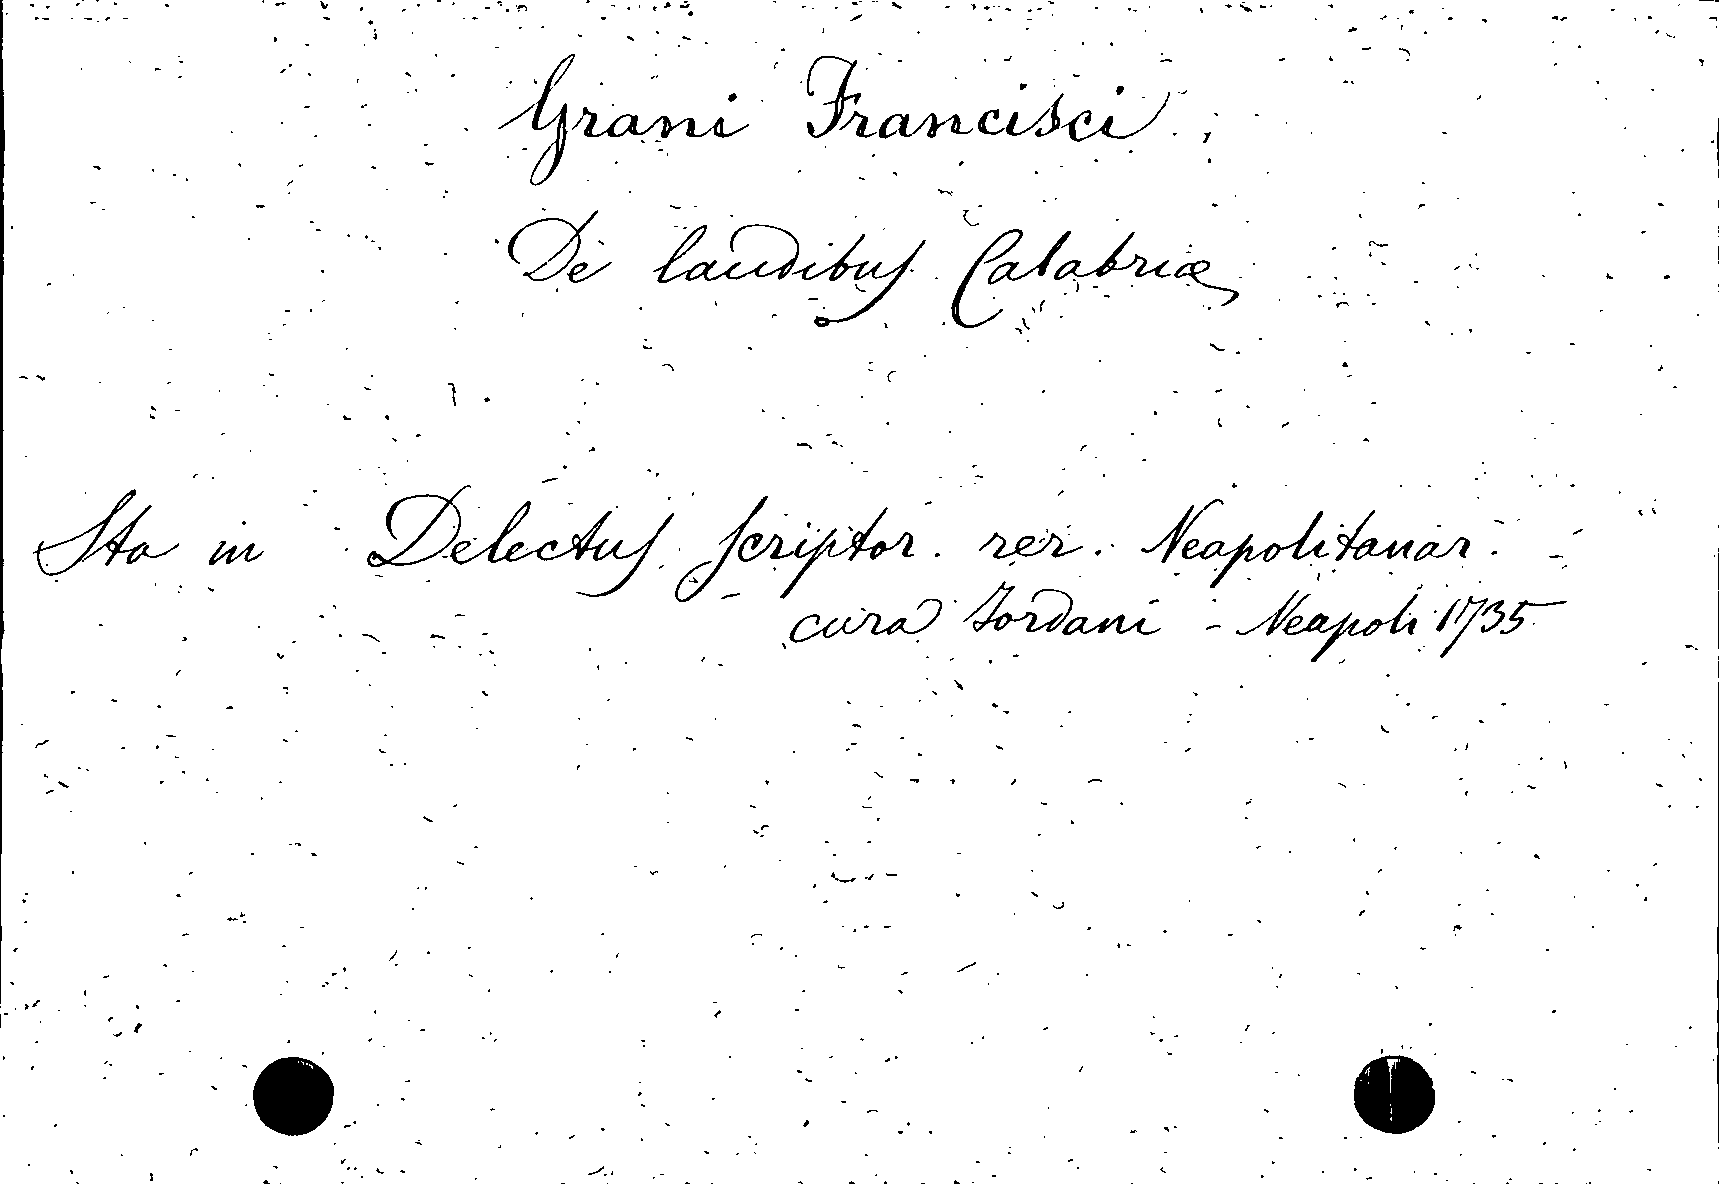 Grani Francisci
De laudibus Calabriæ
Sta in Delectus scriptor. rer. Neapolitanar.
cura Jordani - Neapoli 1735